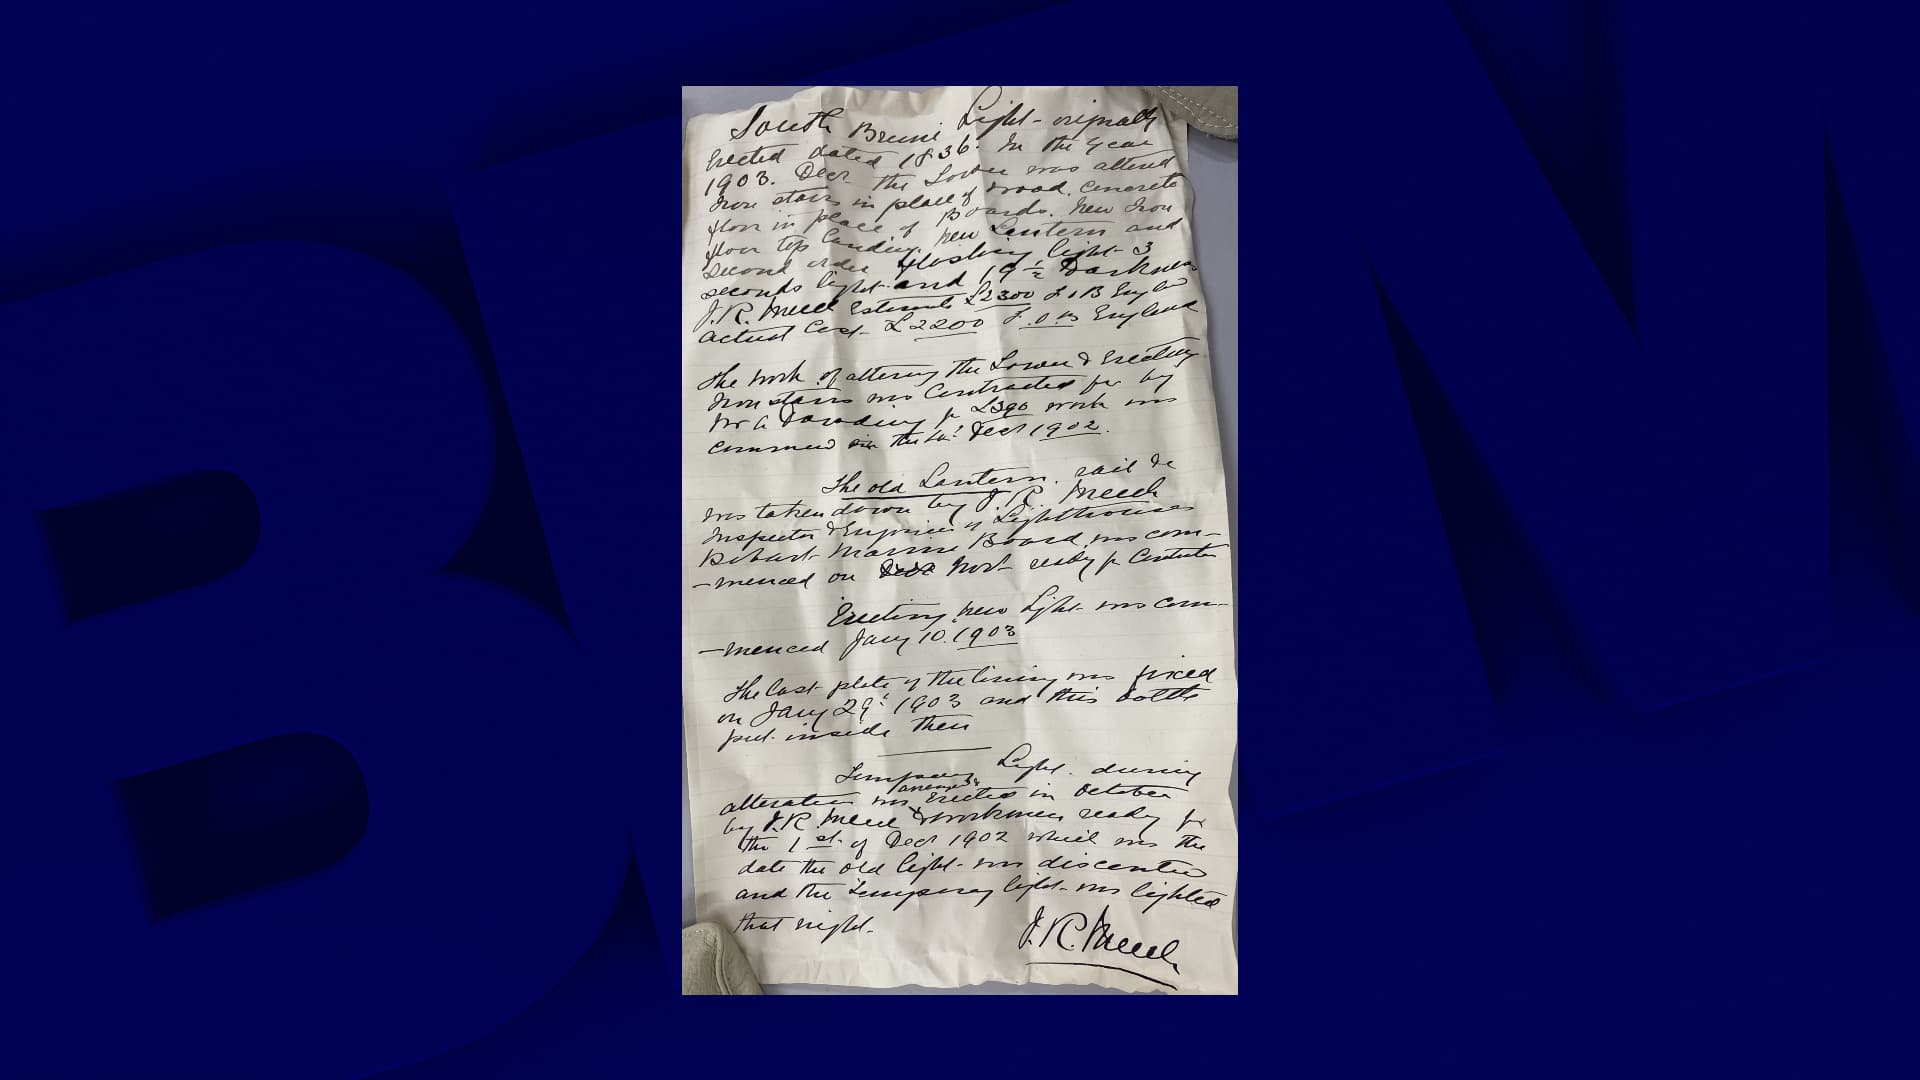 South Bruni Light - originally
Erected dated 1836. In the year
1903. Decr. the Tower was altered
Iron stairs in place of wood. Concrete
floor in place of Boards. New Iron
floor top landing. New Lantern and
second order flashing light - 3
seconds light and 19 1/2 Darkness
J.R. Meech Estimate £2300
Actual Cost - £2200 F.O.B England
The work of altering the Tower & Erecting
Iron stairs was Contracted for by
for £390 work was
in the Decr 1902.
The old Lantern. rail &c
was taken down by J.R. Meech
Inspector & Engineer of Lighthouses
Hobart Marine Board, was com-
-menced on
Erecting new Light was com-
-menced Jany 10. 1903
The last plate of the lining was fixed
on Jany 29: 1903 and this bottle
put inside then
Temporary Light. during
alteration was Erected in October
by J.R. Meech & workmen ready for
the 1st of Decr 1902 which was the
date the old light was
and the Temporary light was lighted
that night.
J.R. Meech